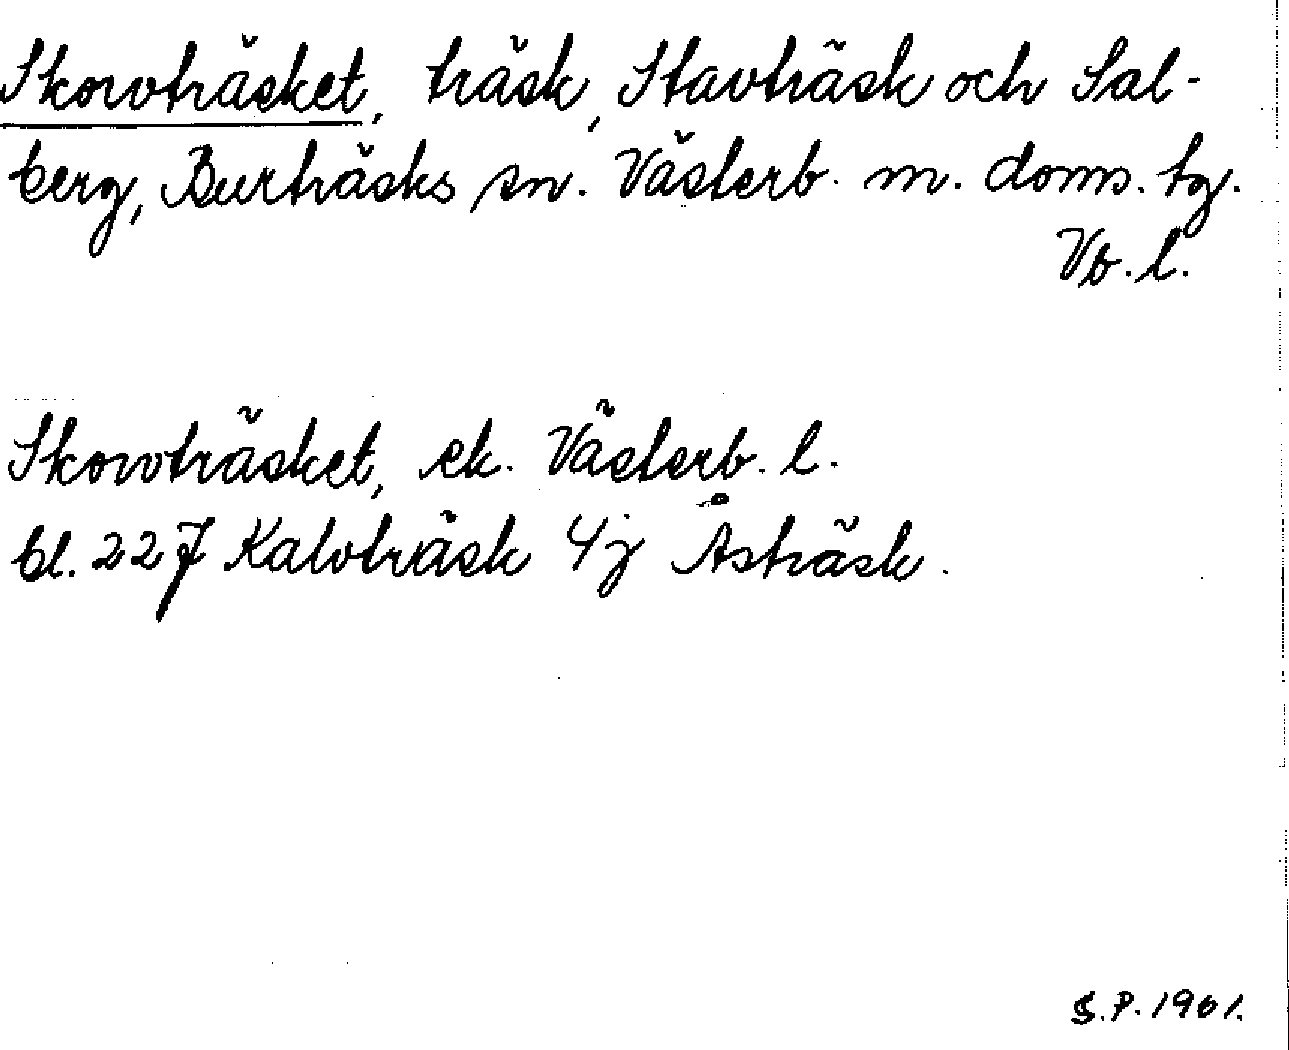 Skorvträsket, träsk, Stavträsk och Sal-
berg, Burträsks sn. Västerb. m. doms. tg.
Vb. l.
Skorvträsket, ek. Västerb. l.
bl. 227 Kalvträsk 4j Åsträsk.
S.P. 1961.